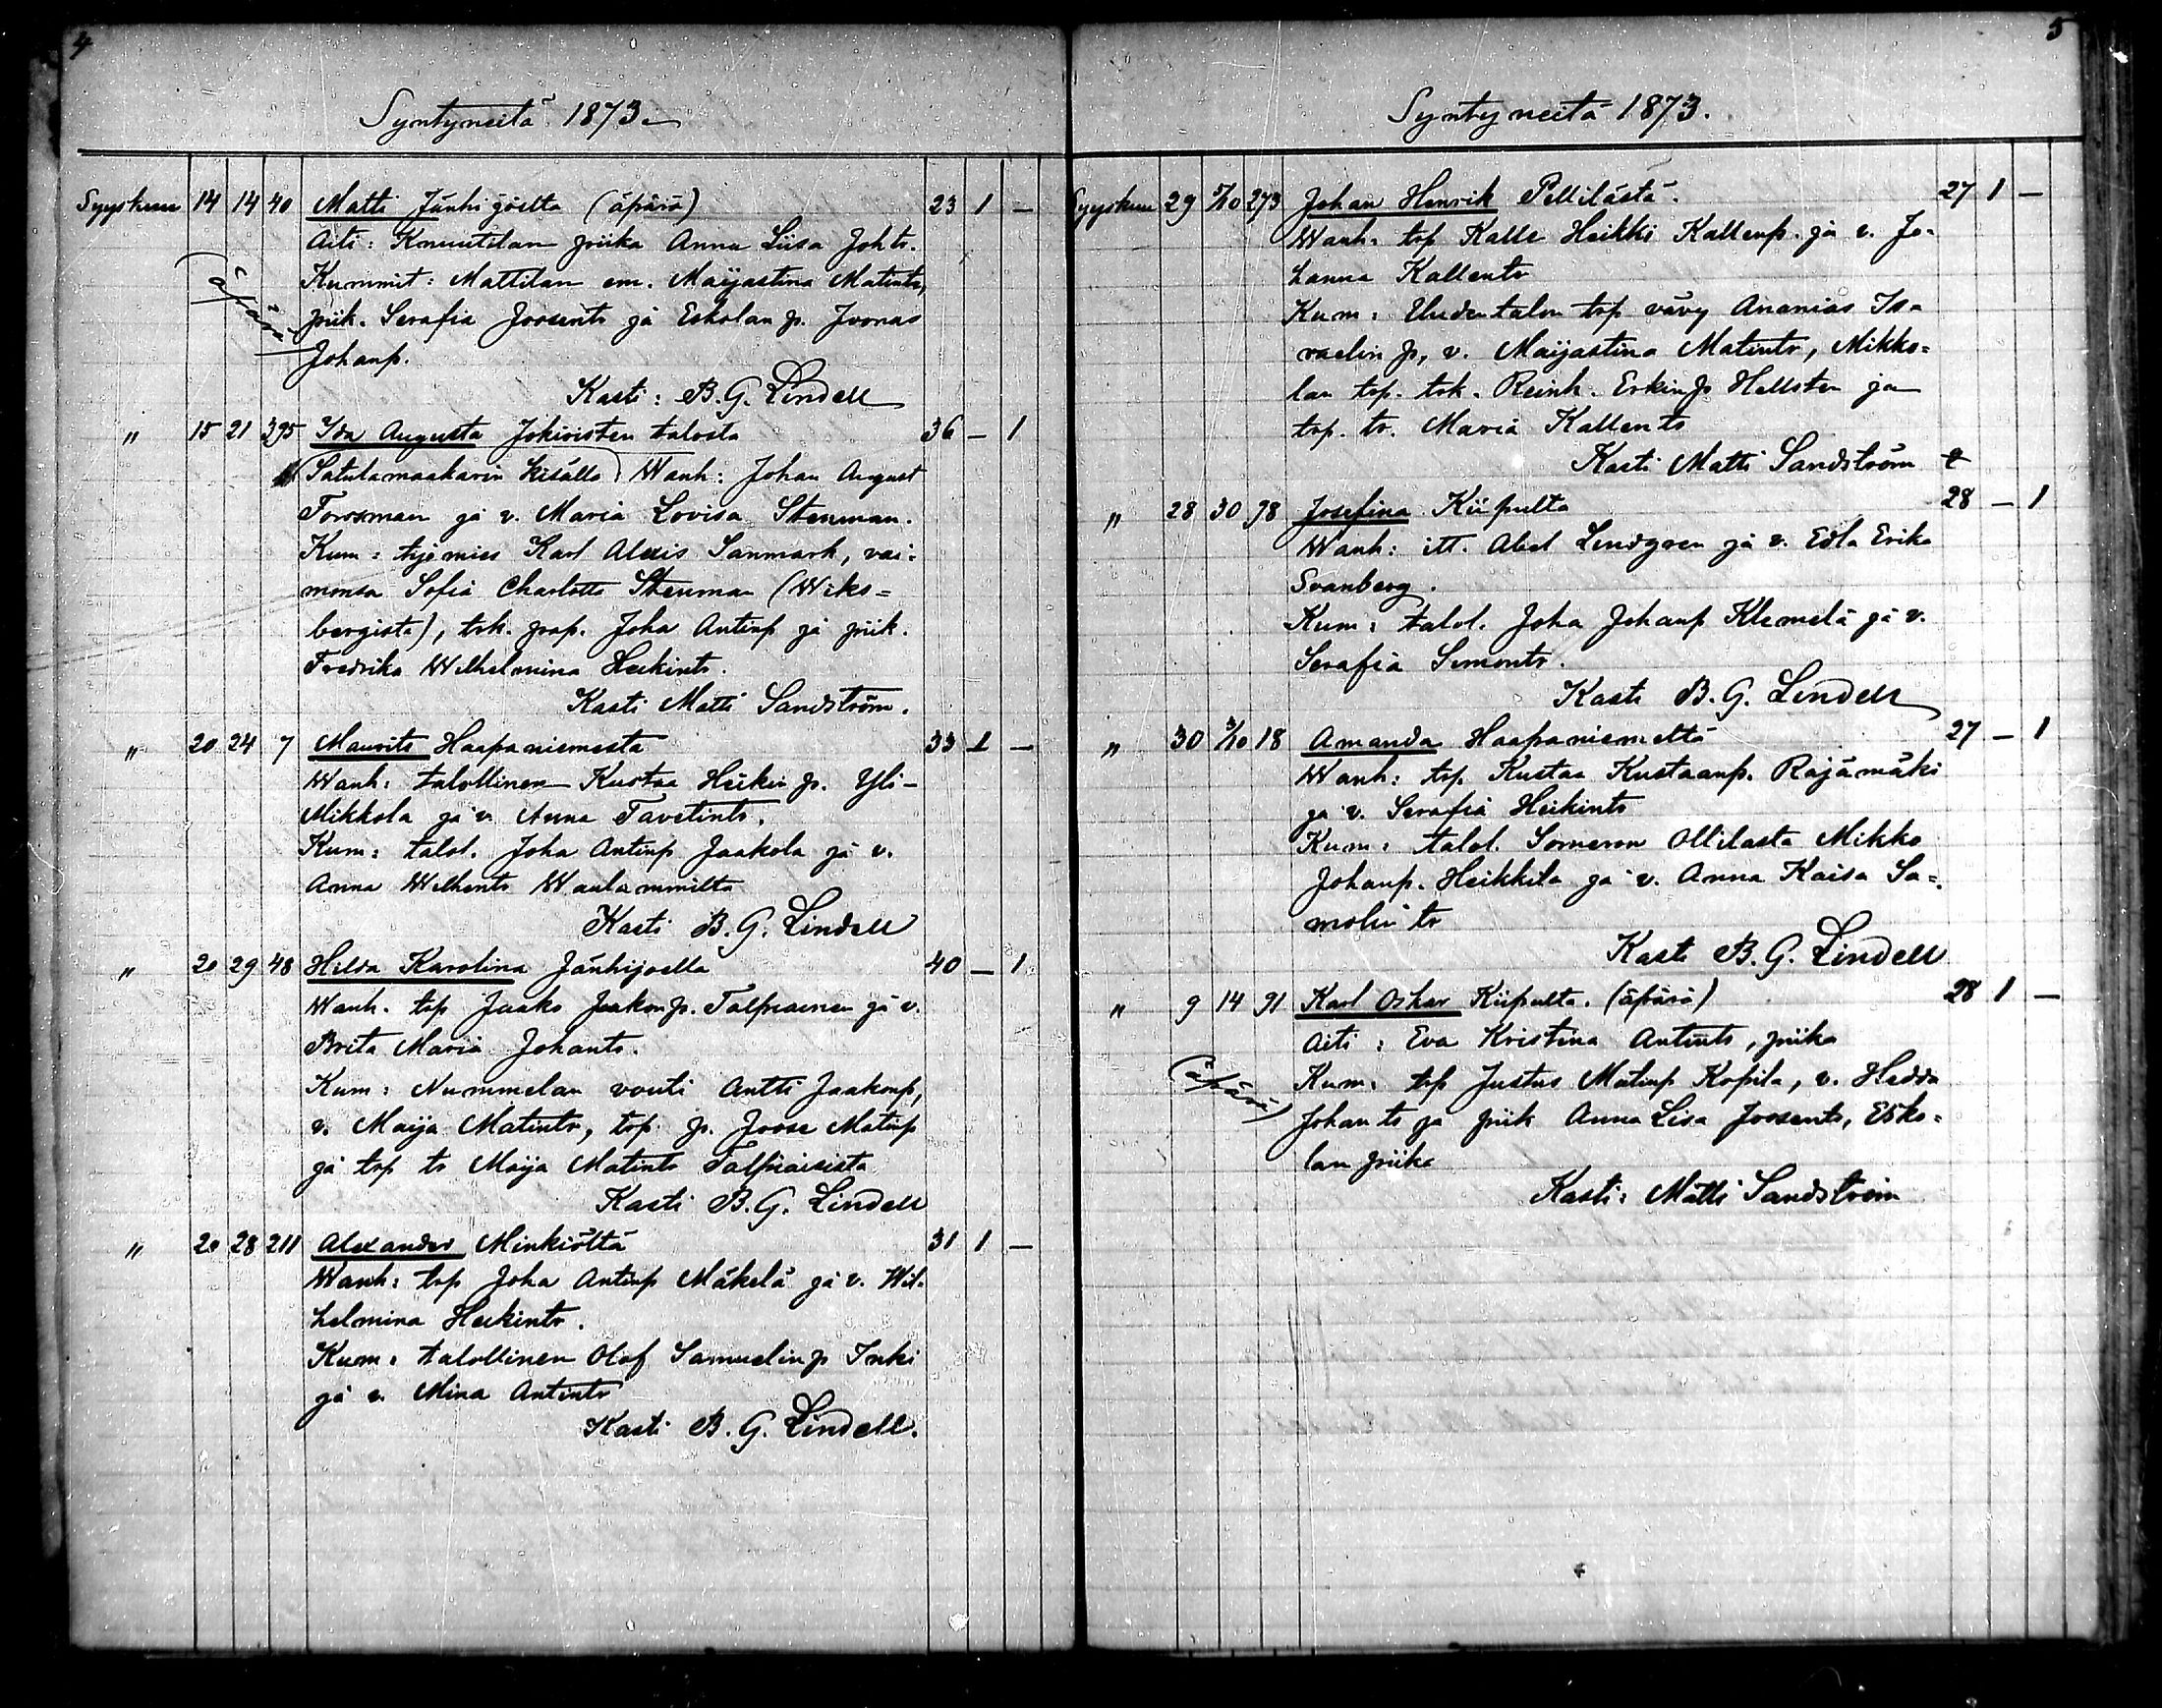 4
Syntyneitä 1873.
Syyskuu 14 14 40 Matti Jänhijoelta (äpärä) 23 1 —
Aiti: Knuutilan piika Anna Liisa Johtr.
(äpärä)
Kummit: Mattilan em. Maijastina Matintr,
piik. Serafia Joosentr ja Eskolan p. Joonas
Johanp.
Kasti: B. G. Lindell
" 15 21 395 Ida Augusta Jokioisten talosta 36 — 1
(Satulamaakarin kisälli) Wanh: Johan August
Forsman ja v. Maria Lovisa Stenman.
Kum: työmies Karl Alexis Sanmark, vai-
monsa Sofia Charlotta Stenman (Wiks=
bergista), trk. prap. Joha Antinp ja piik.
Fredrika Wilhelmina Heikintr.
Kasti Matti Sandström.
" 20 24 7 Maurits Haapaniemestä 33 1 —
Wanh: talollinen Kustaa Heikin p. Yli-
Mikkola ja v. Anna Tavetintr.
Kum: talol. Joha Antinp Jaakola ja v.
Anna Wilhentr Waulammilta
Kasti B. G. Lindell
" 20 29 48 Hilda Karolina Jänhijoella 40 — 1
Wanh. trp Jaako Jaakonp. Talpiainen ja v.
Brita Maria Johantr.
Kum: Nummelan vouti Antti Jaakonp,
v. Maija Matintr, trp. p. Joose Matinp
ja trp tr Maija Matintr Talpiaisista
Kasti B. G. Lindell
" 20 28 211 Alexander Minkiöltä 31 1 —
Wanh: trp Joha Antinp Mäkelä ja v. Wil-
helmina Heikintr.
Kum: talollinen Olof Samuelinp Inki
ja v. Mina Antintr
Kasti B. G. Lindell.
5
Syntyneitä 1873.
Syyskuu 29 5/10 273 Johan Henrik Pellilästä. 27 1 —
Wanh. trp Kalle Heikki Kallenp. ja v. Jo-
hanna Kallentr
Kum: Uudentalon trp vävy Ananias Is-
raelin p, v. Maijastina Matintr, Mikko=
lan trp. trk. Reinh. Erkinp Hellsten ja
trp. tr. Maria Kallentr
Kasti Matti Sandström
" 28 30 98 Josefina Kiipulta 28 — 1
Wanh: itt. Abel Lindgren ja v. Edla Erika
Svanberg.
Kum: talol. Joha Johanp Klemelä ja v.
Serafia Simontr.
Kasti B. G. Lindell
" 30 3/10 18 Amanda Haapaniemeltä 27 — 1
Wanh: trp. Kustaa Kustaanp. Rajämäki
ja v. Serafia Heikintr
Kum: talol. Someron Ollilasta Mikko
Johanp. Heikkila ja v. Anna Kaisa Sa=
molin tr
Kasti B. G. Lindell
" 9 14 91 Karl Oskar Kiipulta. (äpärä) 28 1 —
Aiti: Eva Kristina Antintr, piika
(äpärä)
Kum: trp Justus Matinp Kopila, v. Hedda
Johan tr ja piik Anna Lisa Joosentr, Esko-
lan piika
Kasti: Matti Sandström